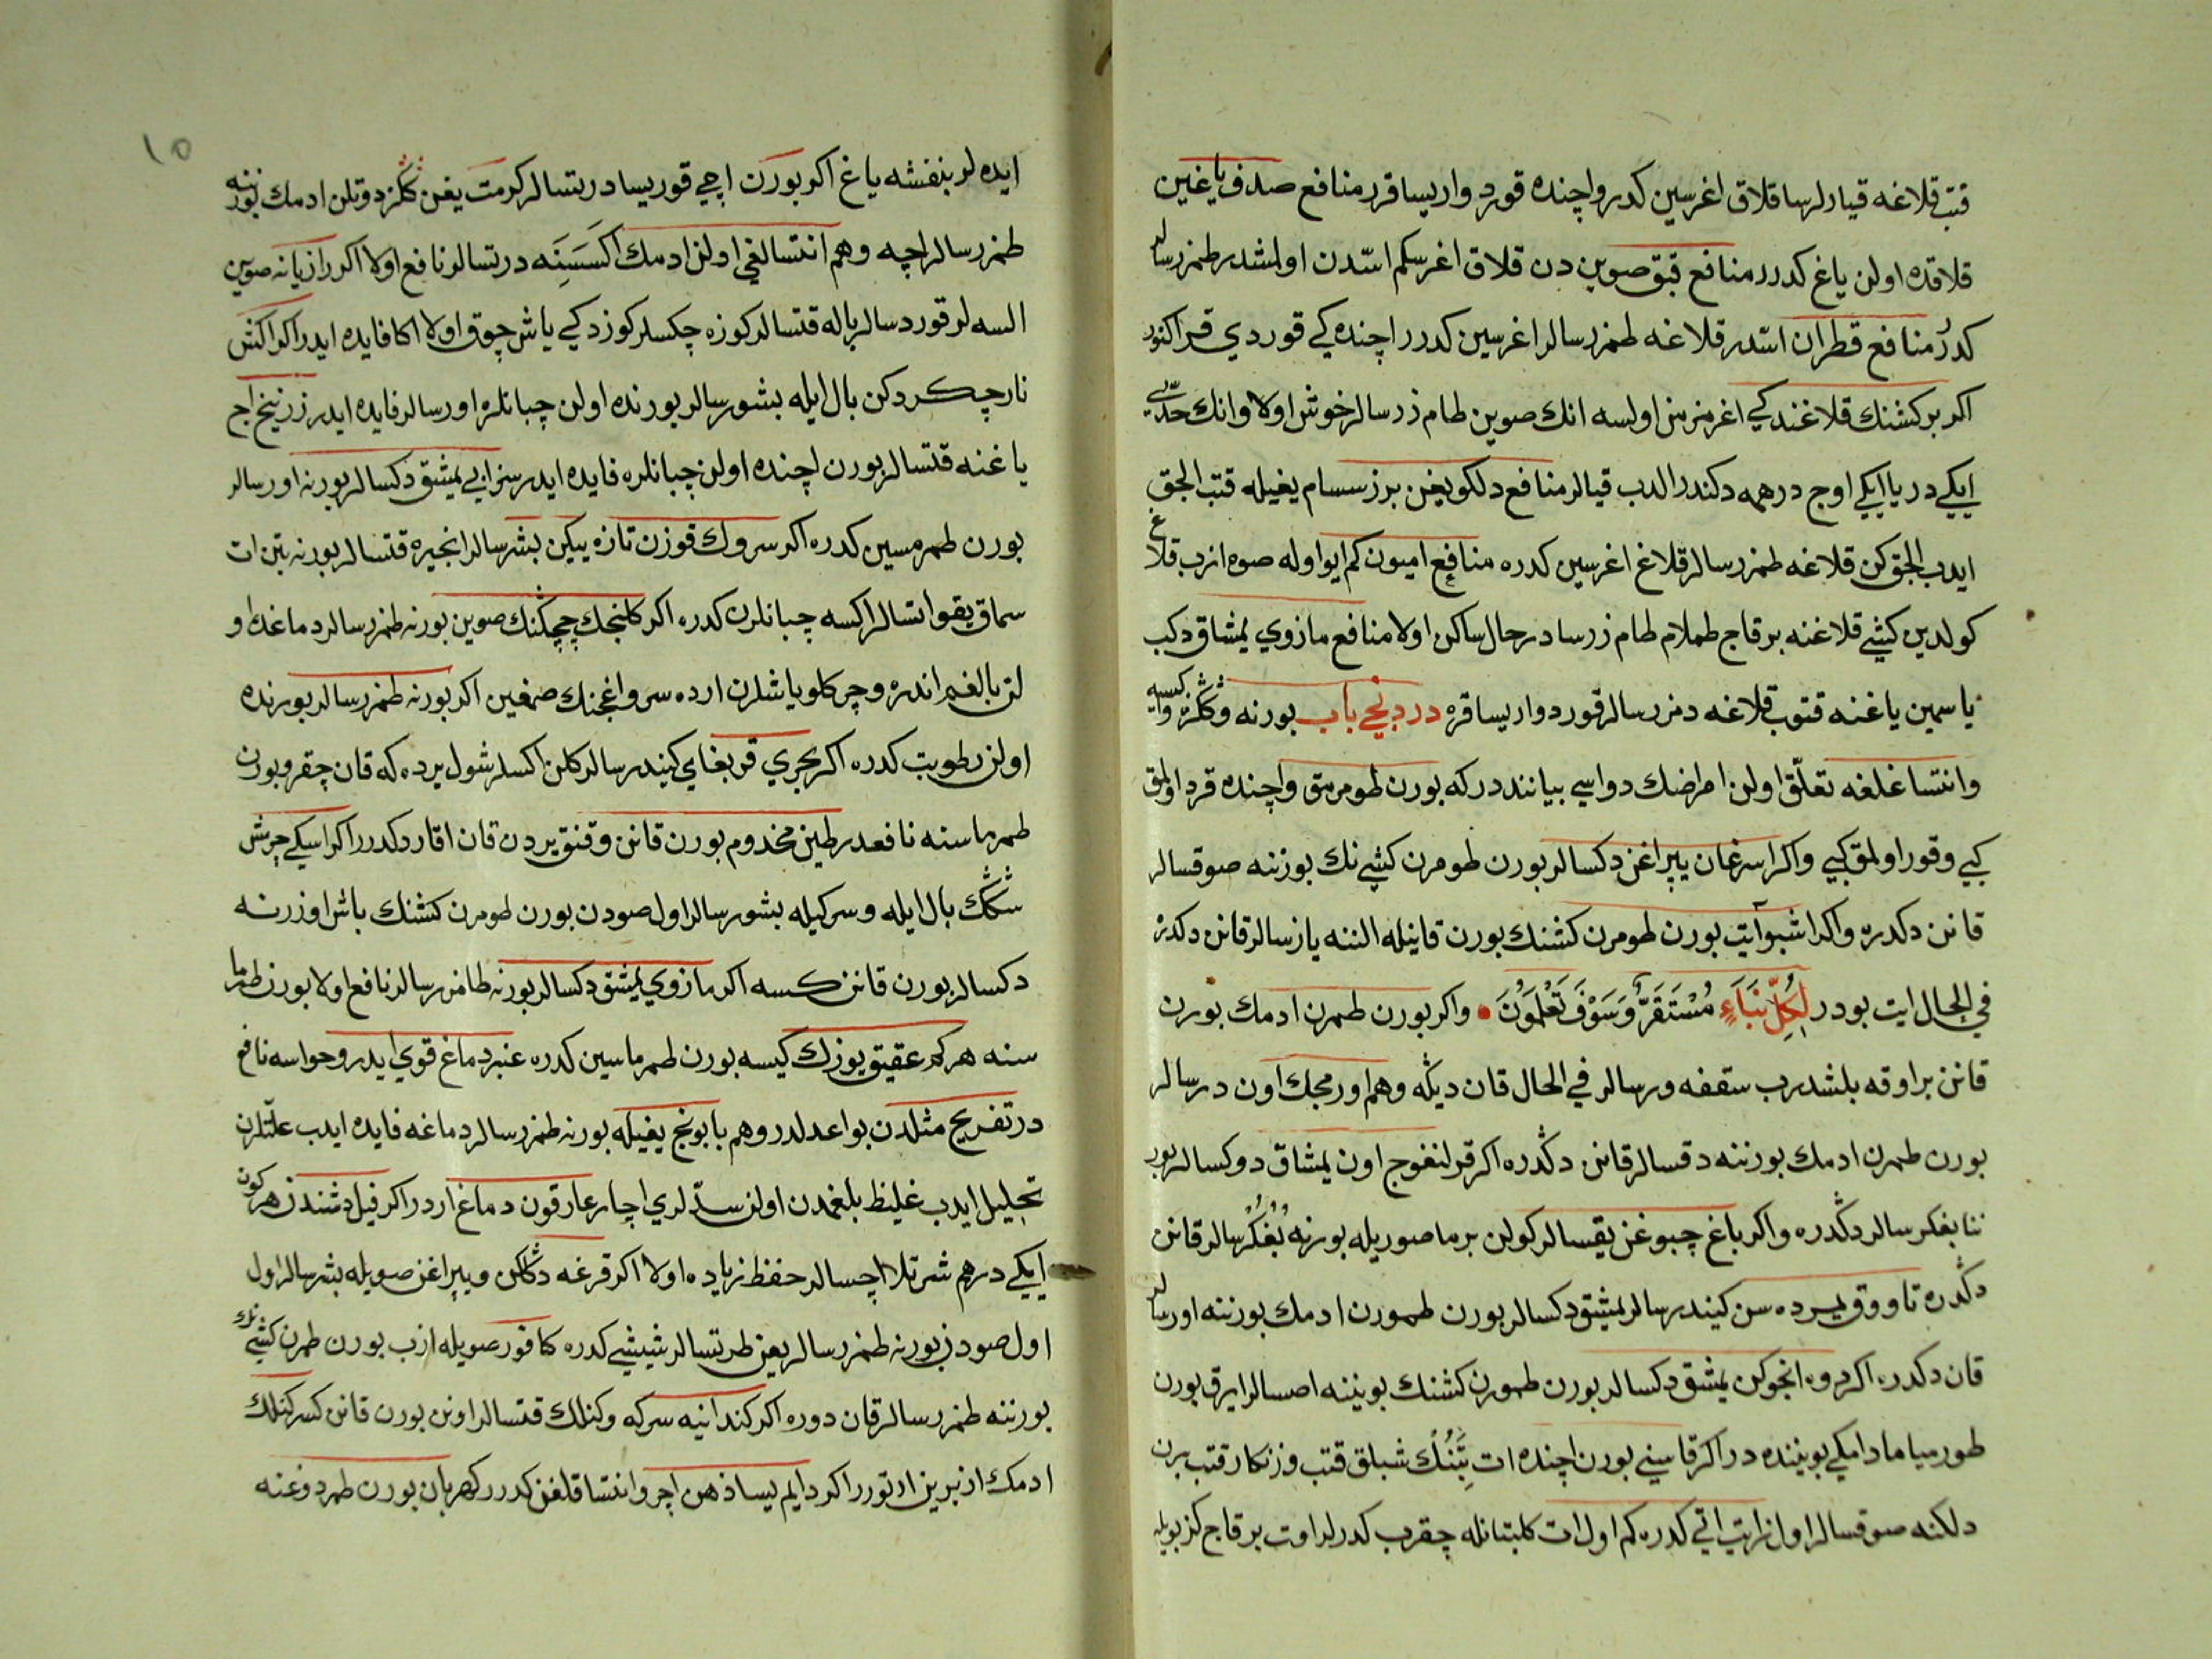 قتب قلاغه قیارلرسا قلاق اغرسین کدرر واچنده قورد واریسا قرر منافع صدف یاغین
قلاقده اولن یاغ کدرر منافع قبق صوین دن قلاق اغرسکم اسّدن اولمشدر طمزرسالر
کدرُر منافع قطران اسّدر قلاغه طمزرسالر اغرسین کدرر اچنده کی قوردي قرر اکثور
اکر برکشنك قلاغندکي اغر مزمن اولسه انك صوین طام زرسالر خوش اولا وانك حدّی
ایکي در یا ایکي اوچ درهمه دکندر الدب قیالر منافع دلکو یغن برز سسام یغیله قتب الجق
ایدب الجق کن قلاغه طمزرسالر قلاغ اغرسین کدره منافع امیون کم ایو اوله صوه ازب قلاغ
کولدین کشي قلاغنه برقاج طملام طام زرسا درحال ساکن اولا منافع مازوي یمشاق دکب
یاسمین یاغنه قتوب قلاغه دمزرسالر قورد واریسا قره دردنجي باب بورنه وککزه واکسیه
وانتسا غلغه تعلّق اولن امراضك دواسي بیانند درکه بورن طومرمق واچنده قرد اولمق
کبي وقور اولمق کبي واکر اسرغان یپراغن دکسالر بورن طومرن کشي نك بورننه صوقسالر
قانن دکدره واکر اشبو آیت بورن طومرن کشنك بورن قانیله الننه یازسالر قانن دکدره
في الحال ایت بودر لِکُلِّ نَبَاءٍ مُسْتَقَرٌّ وَسَوْفَ تَعْلَمُونَ واکر بورن طمرن ادمك بورن
قانن براوقه بلشدرب سقفه ورسالر في الحال قان دیکه وهم اورمجك اون درسالر
بورن طمرن ادمك بورننه دقسالر قانن دکدره اکر قرلنغوج اون یمشاق دوکسالر بور
ننا بفکرسالر دکدره واکر باغ چبوغن یقسالر کولن برما صوریله بورنه بُفکُرسالر قانن
دکدره تاووق یمرده سن کیندرسالر یمشق دکسالر بورن طمورن ادمك بورننه اورسالر
قان دکدره اکر دوه انجوکن یمشق دکسالر بورن طمورن کشنك بویننه اصسالر ایرق بورن
طورمیا مادامکي بویننده در اکر قاسني بورن اچنده ات بتَنُك شبلق قتب وزنکار قتب برن
دلکنه صوقسالر اول زرایت اتي کدره کم اول ات کلبتانله چقرب کدرلر اوت برقاج کز بویله
ایده لر بنفشه یاغ اکر بورن اچي قوریسا درتسالر کرمت یغن ککز دوتلن ادمك بورننه
طمزرسالر اچه وهم انتسالغي اولن ادمك اکسَسِنَه درتسالر نافع اولا اکر رازیانه صوین
السه لر قوردسالر باله قتسالر کوزه چکسلر کوزدکي یاش چوق اولا اکا فایده ایدر اکر اکش
نار چکردکن بال ایله بشورسالر بورنده اولن چبانلره اورسالر فایده ایدر زرنیخ اج
یاغنه قتسالر بورن اچنده اولن چبانلره فایده ایدر سزابي یمشق دکسالر بورنه اورسالر
بورن طمرمسین کدره اکر سروك قوزن تازه ییکن بشرسالر انجیره قتسالر بورنه بتن ات
سماق یقو اتسالر اکسه چبانلرن کدره اکر کلنجك چچکنك صوین بورنه طمزرسالر دماغك او
لن بالغم اندره وچرکلو یاشلرن ارده سرو اغجنك صمغین اکر بورنه طمزرسالر بورنده
اولن رطوبت کدره اکر بحري قربغاي کیندرسالر کلن اکسلر شول یرده که قان چقر وبورن
طمرماسنه نافعدر طین مخدوم بورن قانن وقنق یردن قان اقار دکدرر اکر اسیکي چرش
شکك بال ایله وسرکیله بشورسالر اول صودن بورن طومرن کشنك باش اوزرنه
دکسالر بورن قانن کسه اکر مازوي یمشق دکسالر بورنه طامزرسالر نافع اولا بورن طرما
سنه هرکم عقیق یوزك کیسه بورن طمرماسین کدره عنبر دماغ قوي ایدر وحواسه نافع
در تفریح مثلدن بواعدلدر وهم بابونج یغیله بورنه طمزرسالر دماغه فایده ایدب علّتلرن
تحلیل ایدب غلیظ بلغمدن اولن سدّ لري اچار عارقون دماغ اردر اکر فیل دشندن هرکون
ایکي درهم شرتلا اچسالر حفظ زیاده اولا اکر قرغه دکاکن ویپراغن صویله بشرسالر اول
اول صودن بورنه طمزرسالر یعن طرتسالر شیشي کدره کافور صویله ازب بورن طمرن کشي نك
بورننه طمزرسالر قان دوره اکر کندانیه سرکه وکنلك قتسالر اونن بورن قانن کسر کنلك
ادمك ازبرین ارتورر اکر دایم لیسا ذهن اچر وانتسا قلغن کدرر کهربان بورن طمردوغنه